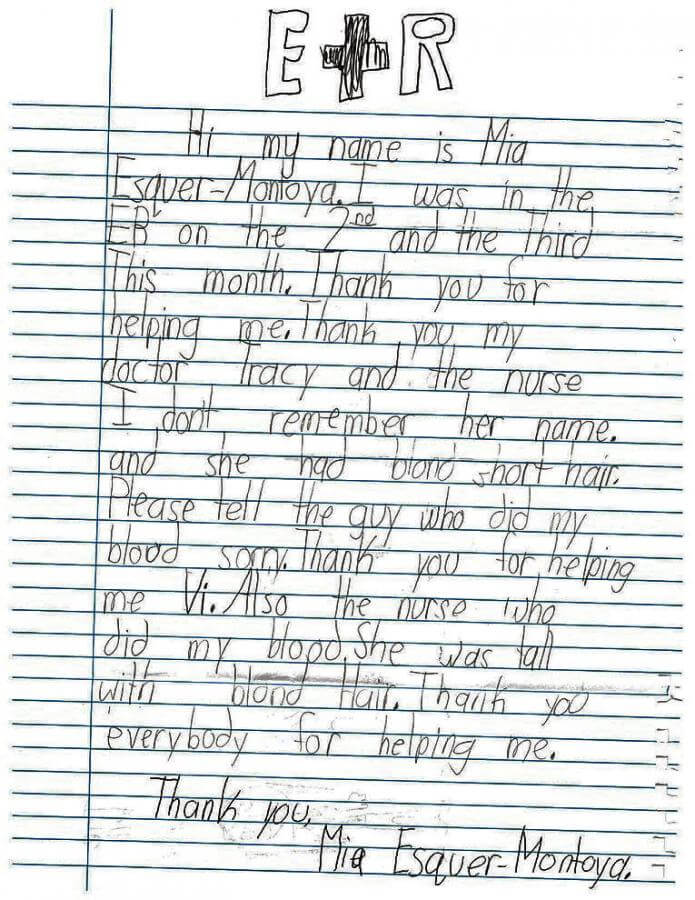 E R
Hi my name is Mia
Esquer-Montoya. I was in the
ER on the 2nd and the Third
This month. Thank you for
helping me. Thank you my
doctor Tracy and the nurse
I don't remember her name.
and she had blond short hair.
Please tell the guy who did my
blood sorry. Thank you for helping
me Vi. Also the nurse who
did my blood. She was tall
with blond Hair. Thank you
everybody for helping me.
Thank you,
Mia Esquer-Montoya.